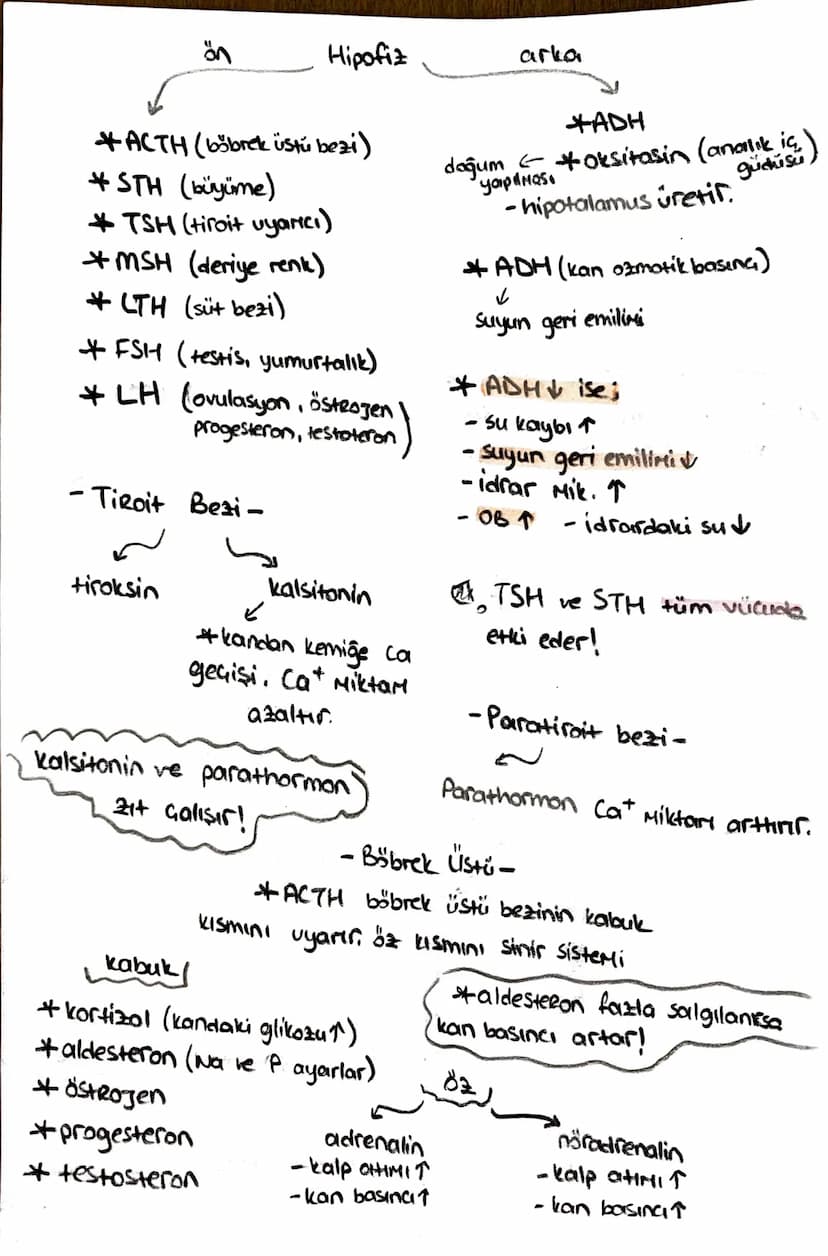 ön Hipofiz arka
*ACTH (böbrek üstü bezi)
*STH (büyüme)
*TSH (tiroit uyarıcı)
*MSH (deriye renk)
*LTH (süt bezi)
*FSH (testis, yumurtalık)
*LH (ovulasyon, östrojen
progesteron, testoteron)
*ADH
doğum yapılması ← *oksitosin (analık iç güdüsü)
-hipotalamus üretir.
*ADH (kan ozmotik basıncı)
↓
suyun geri emilimi
*ADH↓ ise;
- su kaybı ↑
- suyun geri emilimi ↓
- idrar mik. ↑
- OB ↑ - idrardaki su ↓
-Tiroit Bezi-
tiroksin kalsitonin
*kandan kemiğe Ca
geçişi. Ca⁺ miktarı
azaltır.
TSH ve STH tüm vücuda
etki eder!
-Paratiroit bezi-
Parathormon Ca⁺ miktarı arttırır.
kalsitonin ve parathormon
zıt çalışır!
-Böbrek Üstü-
*ACTH böbrek üstü bezinin kabuk
kısmını uyarır. öz kısmını sinir sistemi
kabuk
*kortizol (kandaki glikozu↑)
*aldesteron (Na ve P ayarlar)
*östrojen
*progesteron
*testosteron
*aldesteron fazla salgılanırsa
kan basıncı artar!
öz
adrenalin
-kalp atımı ↑
-kan basıncı ↑
nöradrenalin
-kalp atımı ↑
-kan basıncı ↑